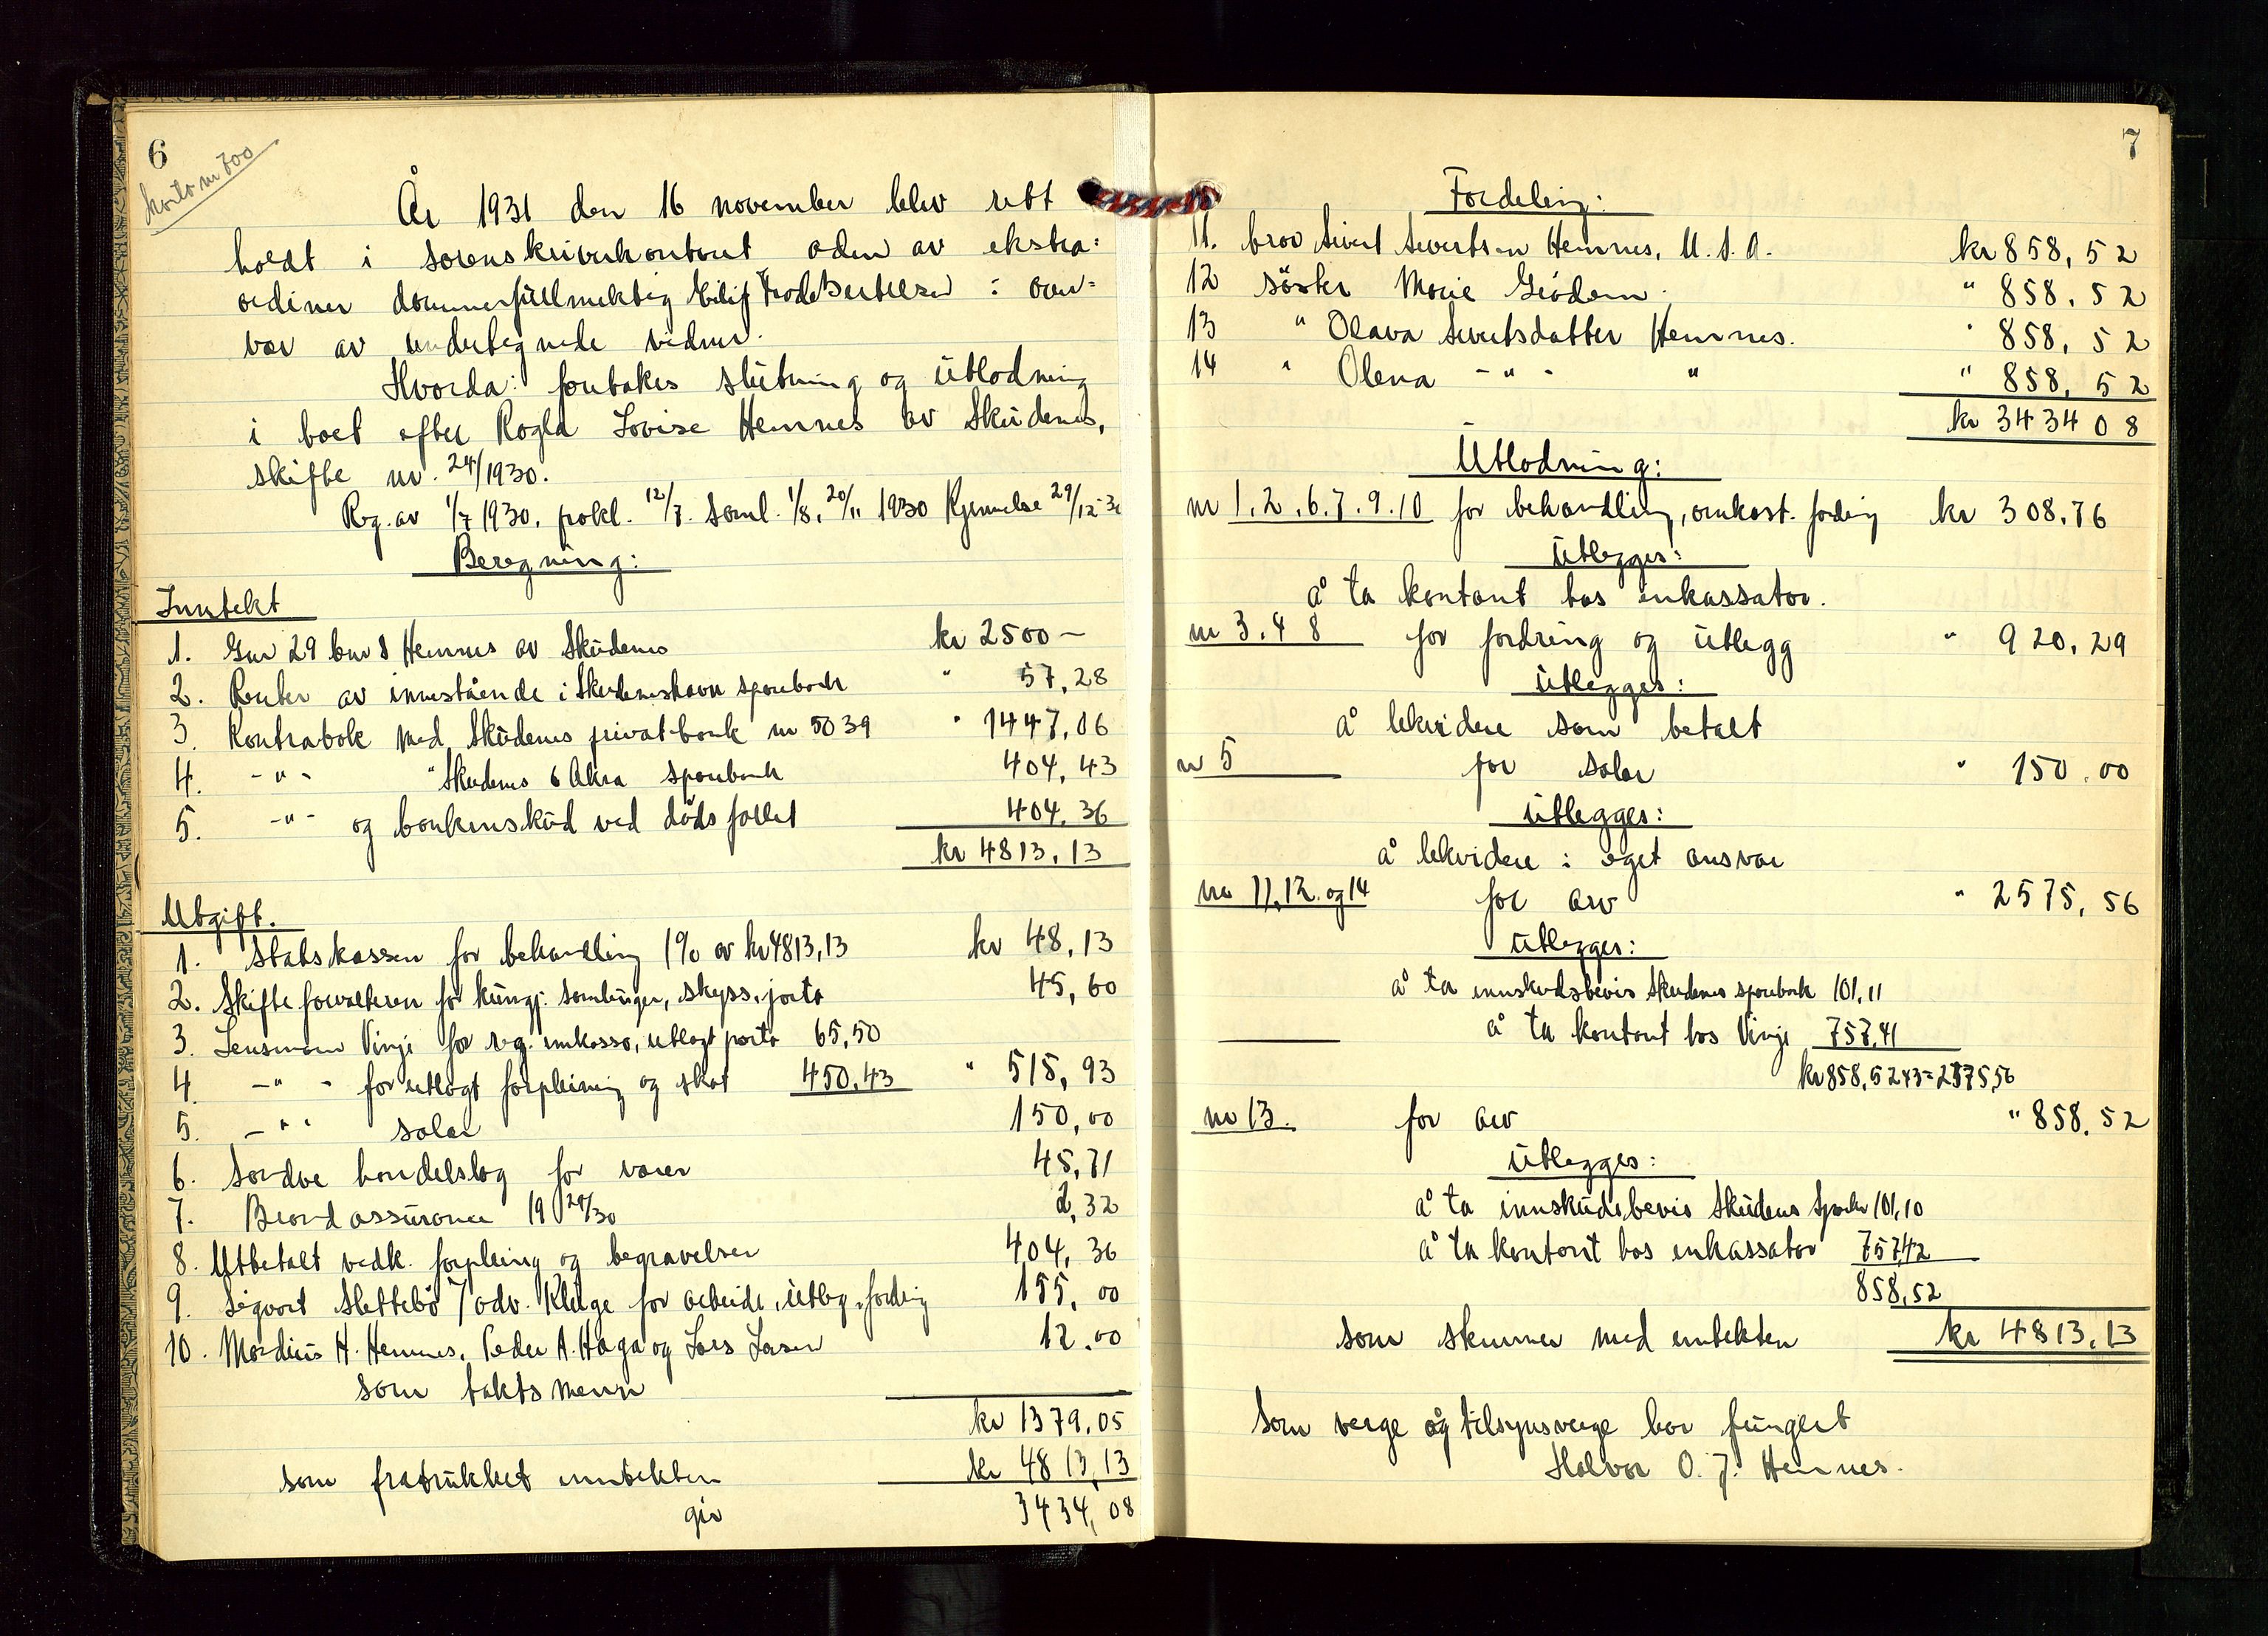 6
konto nr 700
År 1931 den 16 november blev rett
holdt i sorenskriverkontoret aden av ekstra:
ordinær dommerfullmektig Eilif Frode Bertelsen : over=
vær av undertegnede vidner.
Hvorda: foretakes slutning og utlodning
i boet efter Ragla Lovise Hemnes av Skudenes,
skifte nr. 24/1930.
Reg. av 1/7 1930, prokl. 12/7. Saml. 1/8, 20/11 1930 Kjennelse 29/12-30
Beregning:
Inntekt
1. Gnr 29 bnr 8 Hemnes av Skudenes kr 2500 –
2. Renter av innestående i Skudeneshavn sparebank " 57,28
3. Kontrabok med Skudenes privatbank nr 5039 " 1447,06
4. - " - " Skudenes & Åkra sparebank 404,43
5. - " - og bankinskud ved dødsfallet 404,36
kr 4813,13
Utgift.
1. Statskassen for behandling 1% av kr 4813,13 kr 48,13
2. Skifteforvalteren for kungj. samlinger, skyss, porto 45,60
3. Lensmann Vinje for reg. innkasso, utlagt porto 65,50
4. - " - for utlagt forpleining og skat 450,43 " 515,93
5. - " - salær 150,00
6. Sandve handelslag for varer 45,71
7. Brandassurance 19 29/30 2,32
8. Utbetalt vedk. forpleining og begravelsen 404,36
9. Sigvart Slettebö / adv. Kluge for arbeide, utleg, fordring 155,00
10. Mardius H. Hemnes, Peder A. Haga og Lars Larsen 12.00
som takstmenn
kr 1379,05
som fratrukket inntekten kr 4813,13
gir 3434,08
7
Fordeling:
11. bror Sivert Sivertsen Hemnes, U.S.A. kr 858,52
12 søster Marie Grödem. " 858,52
13 " Olava Sivertsdatter Hemnes. " 858,52
14 " Olena - " - " " 858,52
kr 3434 08
Utlodning:
nr 1.2.6.7.9.10 for behandling, omkost. fordring kr 308,76
Utlegges:
å ta kontant hos inkassator.
nr 3.4 8 for fordring og utlegg " 920,29
Utlegges:
å lekvidere som betalt
nr 5 for salær " 150.00
Utlegges:
å lekvidere : eget ansvar
nr 11, 12. og 14 for arv " 2575,56
Utlegges:
å ta innskudsbevis Skudenes sparebank 101,11
å ta kontant hos Vinje 757,41
kr 858,52x3=2575,56
nr 13. for arv " 858,52
Utlegges:
å ta innskudsbevis Skudenes Sparebk 101,10
å ta kontant hos inkassator 757,42
858,52
som stemmer med inntekten kr 4813,13
Som verge og tilsynsverge har fungert
Halvor O. J. Hemnes.